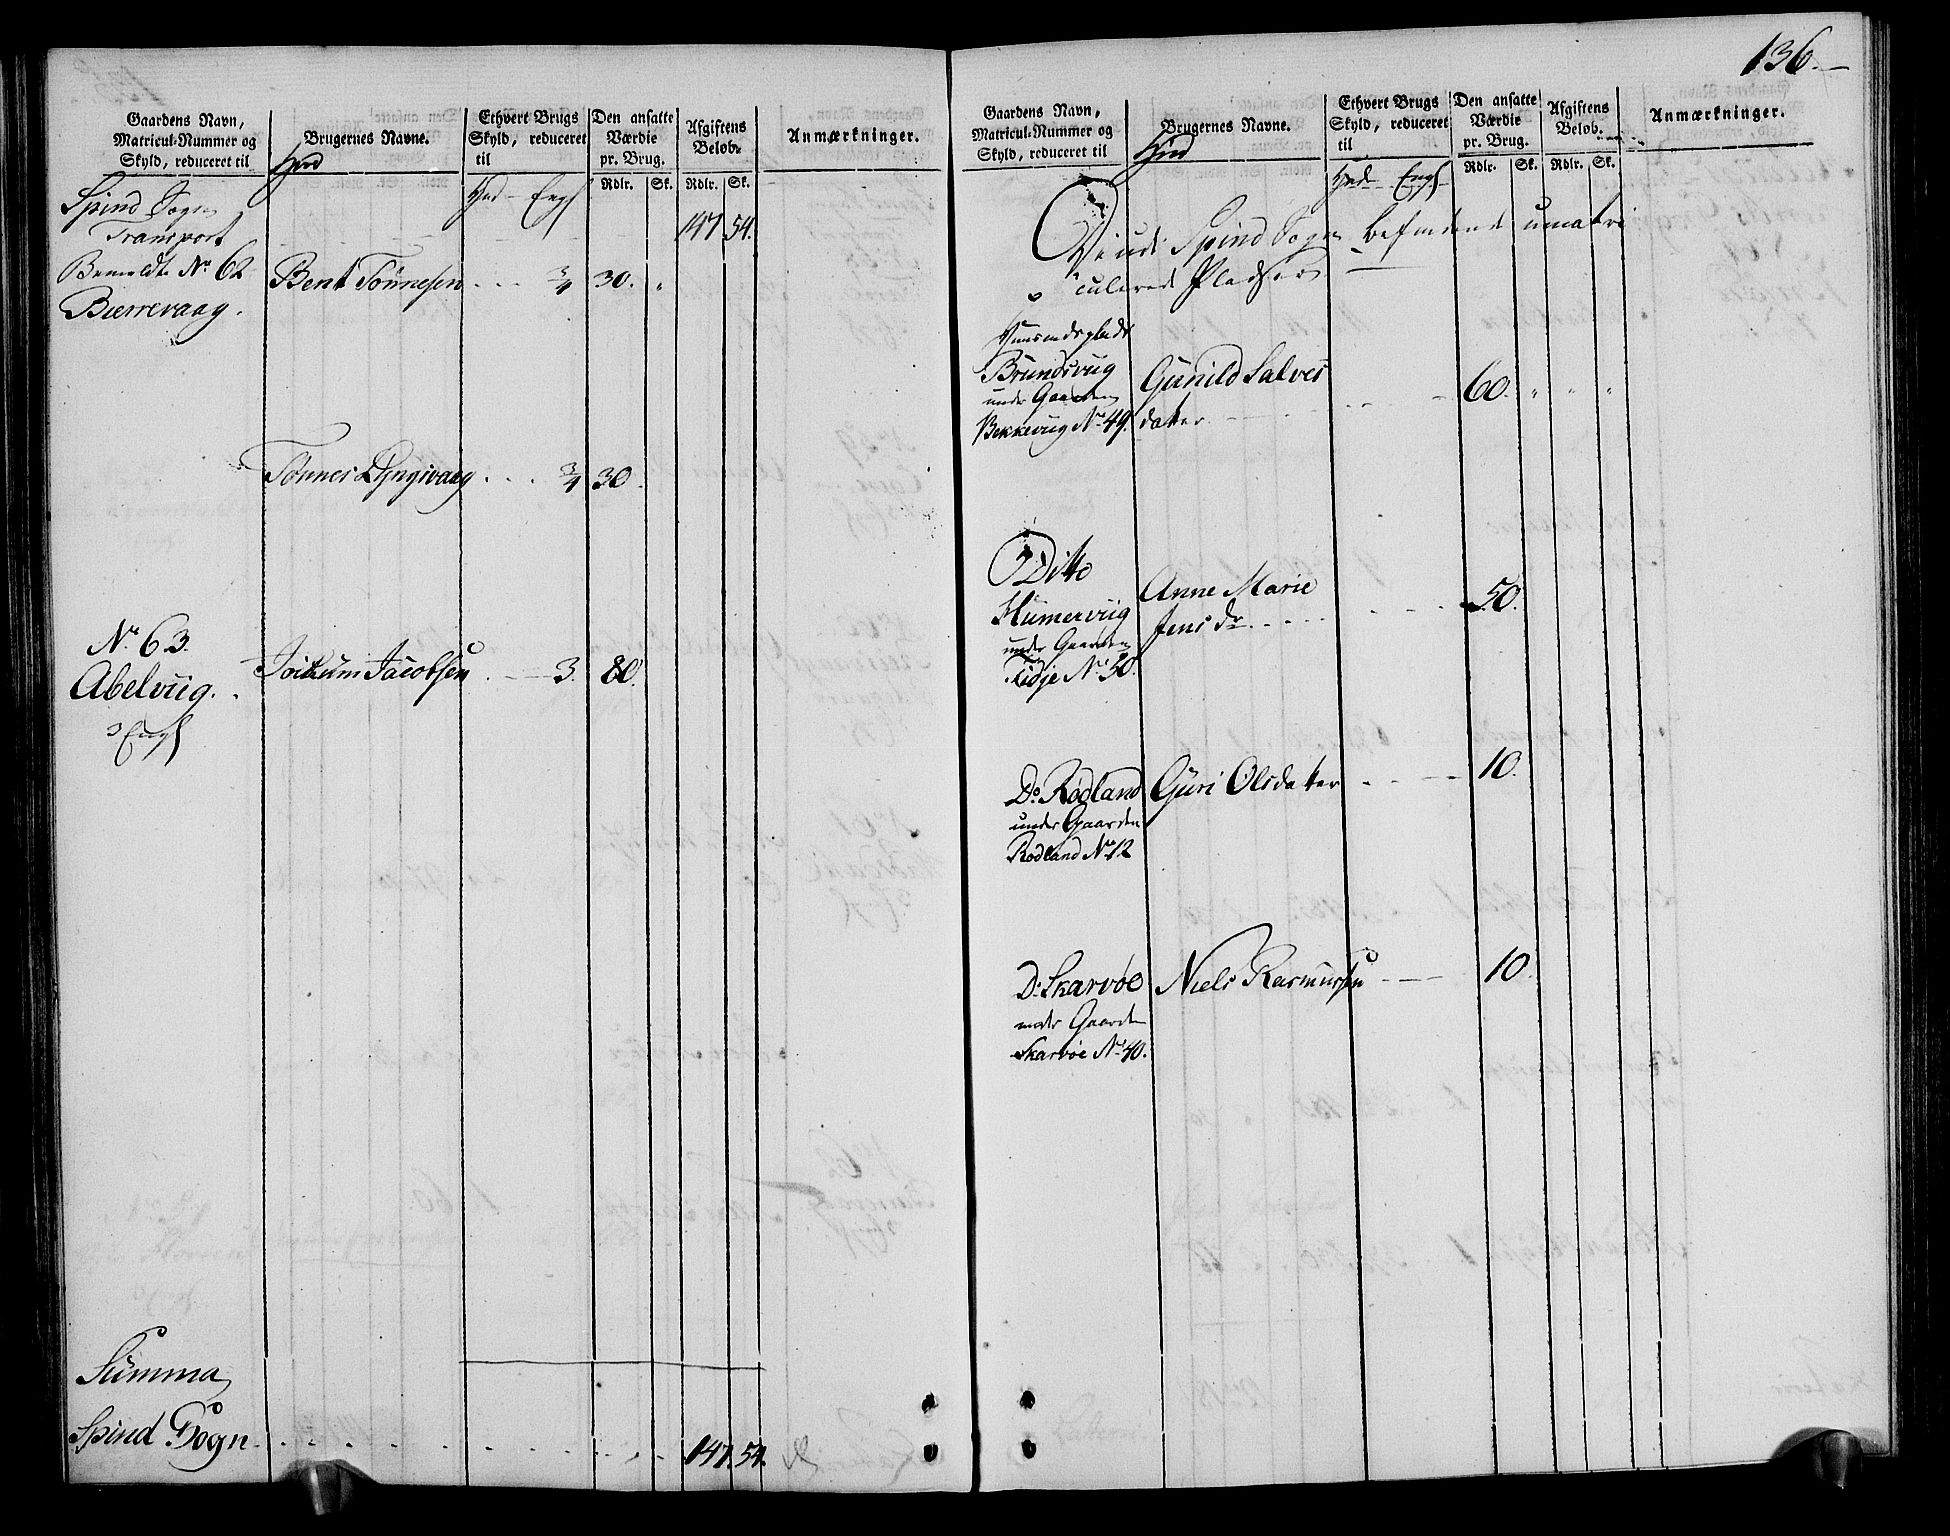 Gaardens Navn,
Matricul-Nummer og
Skyld, reduceret til
Hud
Brugernes Navne.
Ethvert Brugs
Skyld, reduceret
til
Hud Eng
Den ansatte
Værdie
pr. Brug.
Rdlr. Sk.
Afgiftens
Beløb.
Rdlr. Sk.
Anmærkninger.
Spind Sogn
Transport 147 54.
Bemeldte No 62
Bierrevaag.
Bent Tønnesen 3/4 30. "
Tønnes Lyngsvaag 3/4 30.
No 63.
Abelviig.
3 Eng
Jockum Jacobsen 3. 80.
Summa
Spind Sogn 147. 54.
136.
Gaardens Navn,
Matricul-Nummer og
Skyld, reduceret til
Hud
Brugernes Navne.
Ethvert Brugs
Skyld, reduceret
til
Hud Eng
Den ansatte
Værdie
pr. Brug.
Rdlr. Sk.
Afgiftens
Beløb.
Rdlr. Sk.
Anmærkninger.
De udi Spind Sogn befindende umatri
culerede Pladser
Huusmandsplads
Brundsvug
under Gaarden
Bekkeviig No 49.
Gunild Salves
datter 60. " " "
Ditto
Humerviig
under Gaarden
Tidje No 50.
Anne Marie
Jens Dr 50.
Do Rødland
under Gaarden
Rodland No 12
Guri Olsdatter 10.
Do Skarvøe
under Gaarden
Skarvøe No 40.
Niels Rasmussen 10.